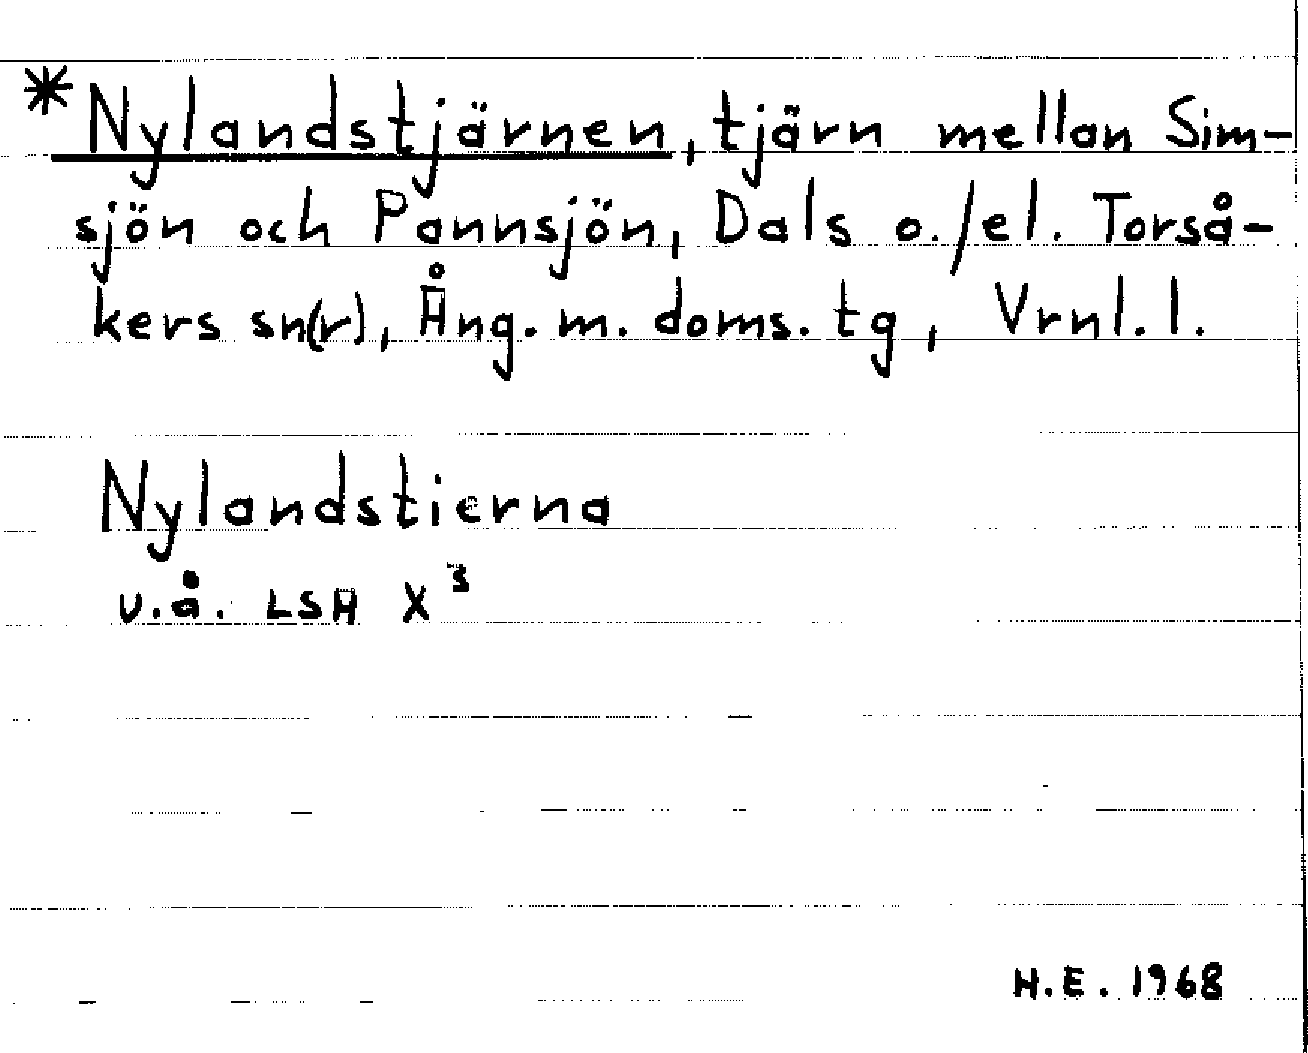 *Nylandstjärnen, tjärn mellan Sim-
sjön och Pannsjön, Dals o./el. Torså-
kers sn(r), Ång. m. doms. tg, Vrnl. l.
Nylandstierna
u.å. LSA X³
H.E. 1968